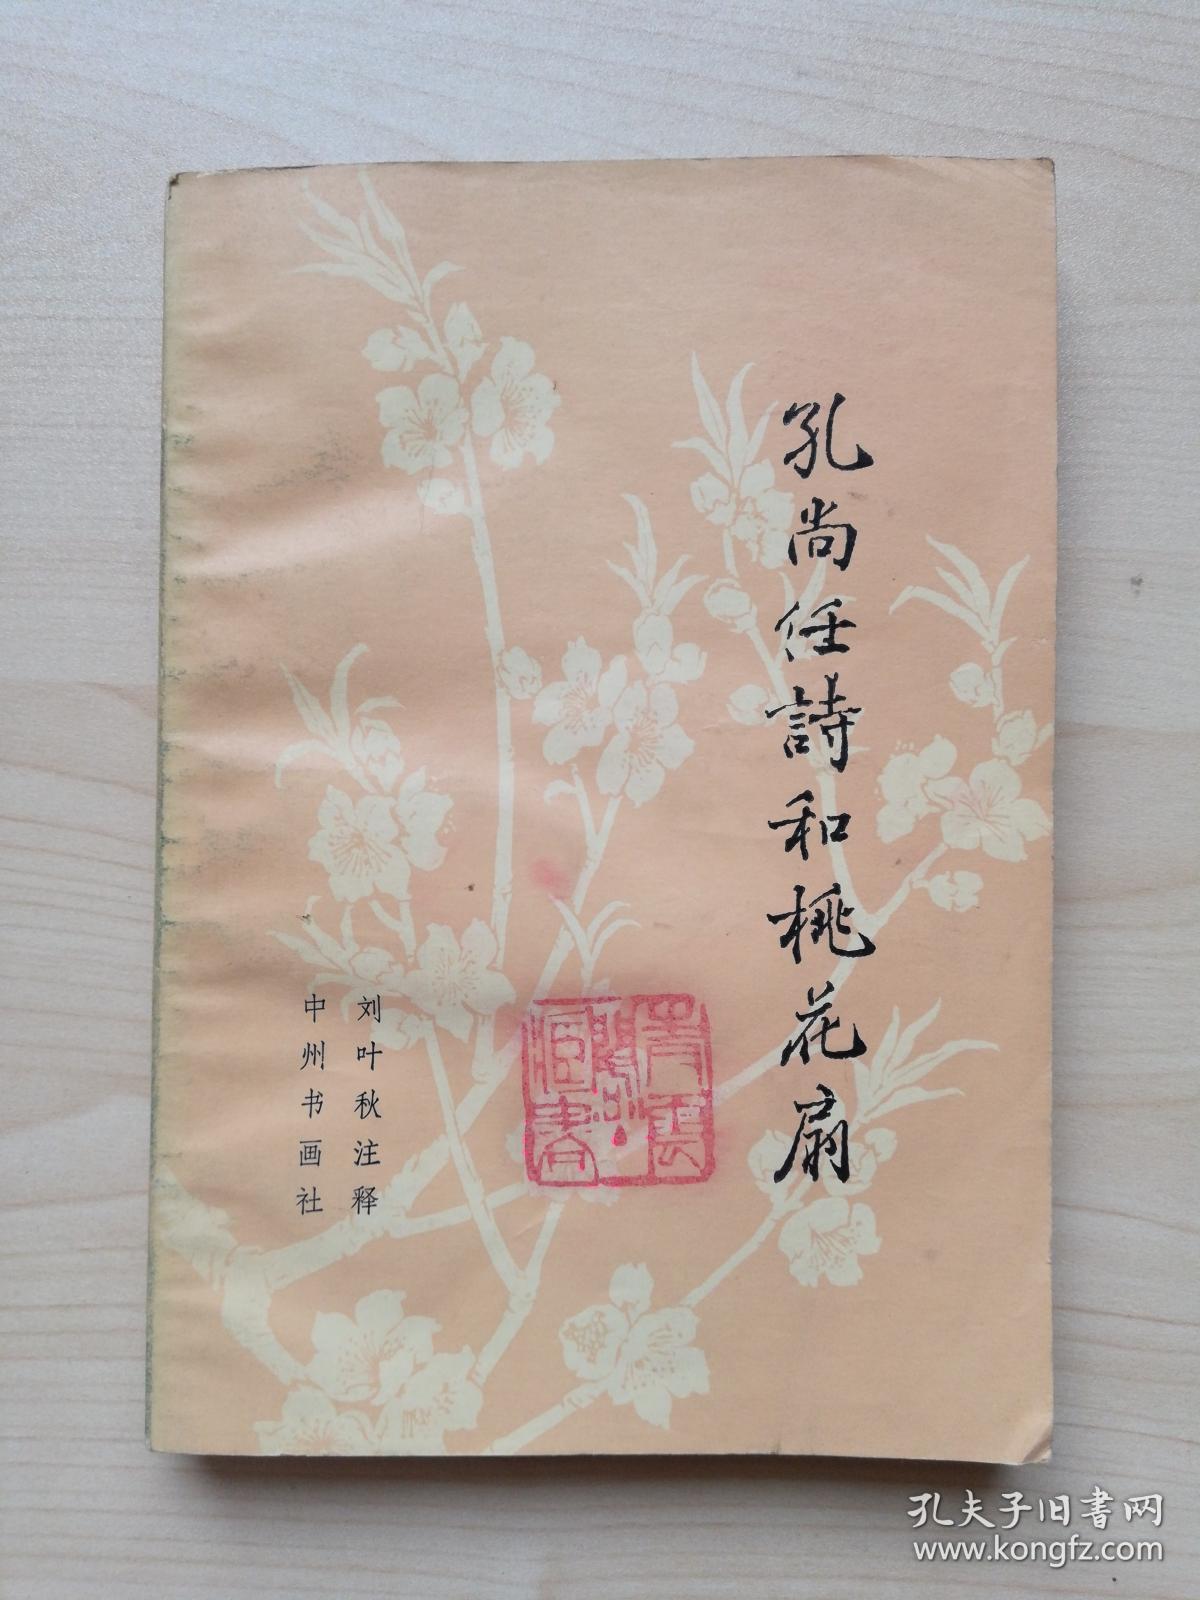 孔尚任詩和桃花扇
刘叶秋注释
中州书画社
孔夫子旧书网
www.kongfz.com